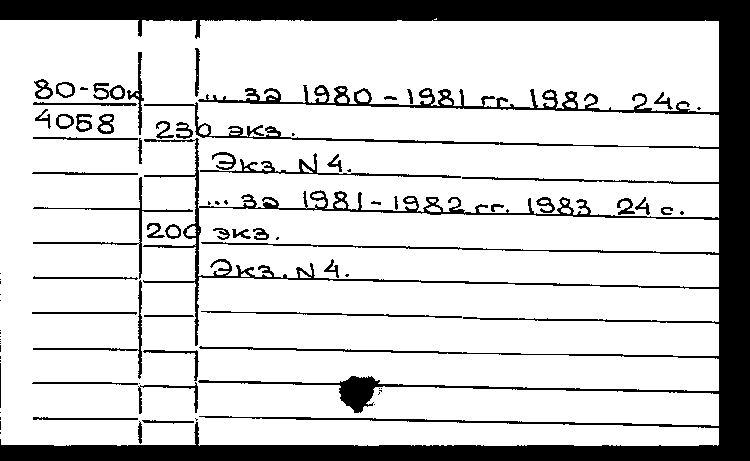 80-50к ... за 1980-1981 гг. 1982. 24с.
4058 230 экз.
Экз. N 4.
... за 1981-1982 гг. 1983 24 с.
200 экз.
Экз. N 4.